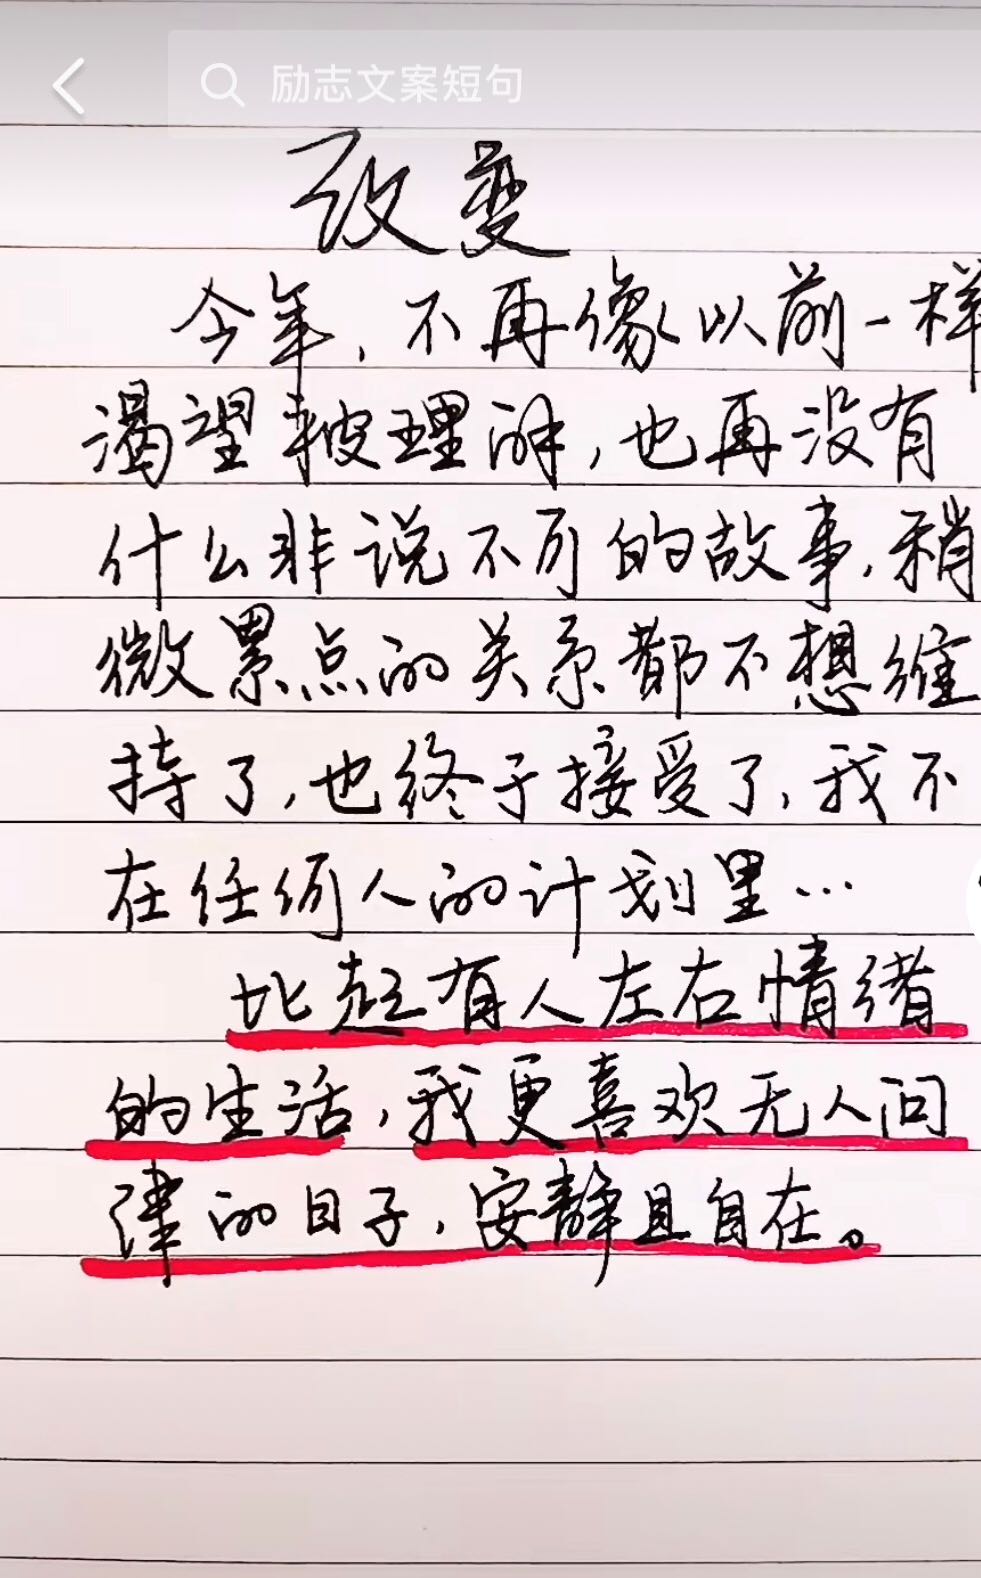 励志文案短句
改变
今年,不再像以前一样
渴望被理解,也再没有
什么非说不可的故事,稍
微累点的关系都不想维
持了,也终于接受了,我不
在任何人的计划里…
比起有人左右情绪
的生活,我更喜欢无人问
津的日子,安静且自在。